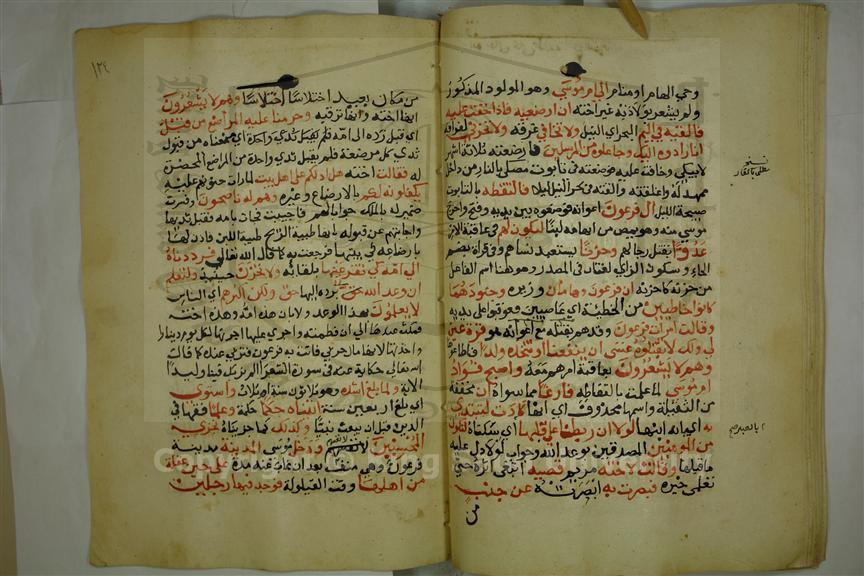 وحي الهام او منام الى ام موسى وهو المولود المذكور
ولم يشعر بولادته غير اخته ان ارضعيه فاذا خفت عليه
فالقيه في اليم البحر اي النيل ولا تخافي غرقه ولا تحزني لفراقه
انا رادوه اليك وجاعلوه من المرسلين فارضعته ثلاثة اشهر
لا يبكي وخافت عليه فوضعته في تابوت مطلي بالقار من داخل
ممهد له واغلقته والقته في بحر النيل ليلا فالتقطه بالتابوت
صبيحة الليل ال فرعون اعوانه فوضعوه بين يديه وفتح واخرج
موسى منه وهو يمص من ابهامه لبنا ليكون لهم في عاقبة الامر
عدوا يقتل رجالهم وحزنا يستعبد نساهم وفي قراة بضم
الحاء وسكون الزاي لغتان في المصدر وهو هنا اسم الفاعل
من حزنه كاحزنه ان فرعون وهامان وزيره وجنودهما
كانوا خاطئين من الخطيئة اي عاصيين فعوقبوا على يديه
وقالت امرات فرعون وقد هم بقتله مع اعوانه هو قرة عين
لي ولك لا تقتلوه عسى ان ينفعنا او نتخذه ولدا فاطاعوها
وهم لا يشعرون بعاقبة امرهم معه واصبح فؤاد
ام موسى لما علمت بالتقاطه فارغا مما سواه ان مخففة
من الثقيلة واسمها محذوف اي انها كادت لتبدي
به اي بانه ابنها لولا ان ربطنا على قلبها اي سكناه لتكون
من المومنين المصدقين بوعد الله وجواب لولا دل عليه
ما قبلها وقالت لاخته مريم قصيه اتبعي اثره حتى
تعلمي خبره فبصرت به ابصرته عن جنب
من
مطلي بالقار
١٢٤
من مكان بعيد اختلاسا اختلاسا وهم لا يشعرون
انها اخته وانها ترقبه وحرمنا عليه المراضع من قبل
اي قبل رده الى امه فلم يقبل ثدي واحدة اي منعناه من قبول
ثدي كل مرضعة فلم يقبل ثدي واحدة من المراضع المحضرة
له فقالت اخته هل ادلكم على اهل بيت لما رات حنوهم عليه
يكفلونه لكم بالارضاع وغيره وهم له ناصحون وفسرت
ضمير له بالملك جوابا لهم فاجيبت فجات بامه فقبل ثديها
واجابتهم عن قبوله بانها طيبة الريح طيبة اللبن فاذن لها
بارضاعه في بيتها فرجعت به كما قال الله تعالى فرددناه
الى امه كي تقر عينها بلقائه ولا تحزن حينيذ ولتعلم
ان وعد الله حق برده اليها حق ولكن اكثرهم اي الناس
لا يعلمون بهذا الوعد ولا بان هذه امه وهذه اخته
فمكث عندها الى ان فطمته واجري عليها اجرتها لكل يوم دينار
واخذتها لانها مال حربي فاتت به فرعون فتربي عنده كما قال
تعالى حكاية عنه في سورة الشعرا الم نربك فينا وليدا
الاية ولما بلغ اشده وهو ثلاثون سنة او ثلاث واستوى
اي بلغ اربعين سنة اتيناه حكما حكمة وعلما فقها في
الدين قبل ان يبعث نبيا وكذلك كما جزيناه نجزي
المحسنين لانفسهم ودخل موسى المدينة مدينة
فرعون وهي منف بعد ان غاب عنه مدة على حين غفلة
من اهلها وقت القيلولة فوجد فيها رجلين